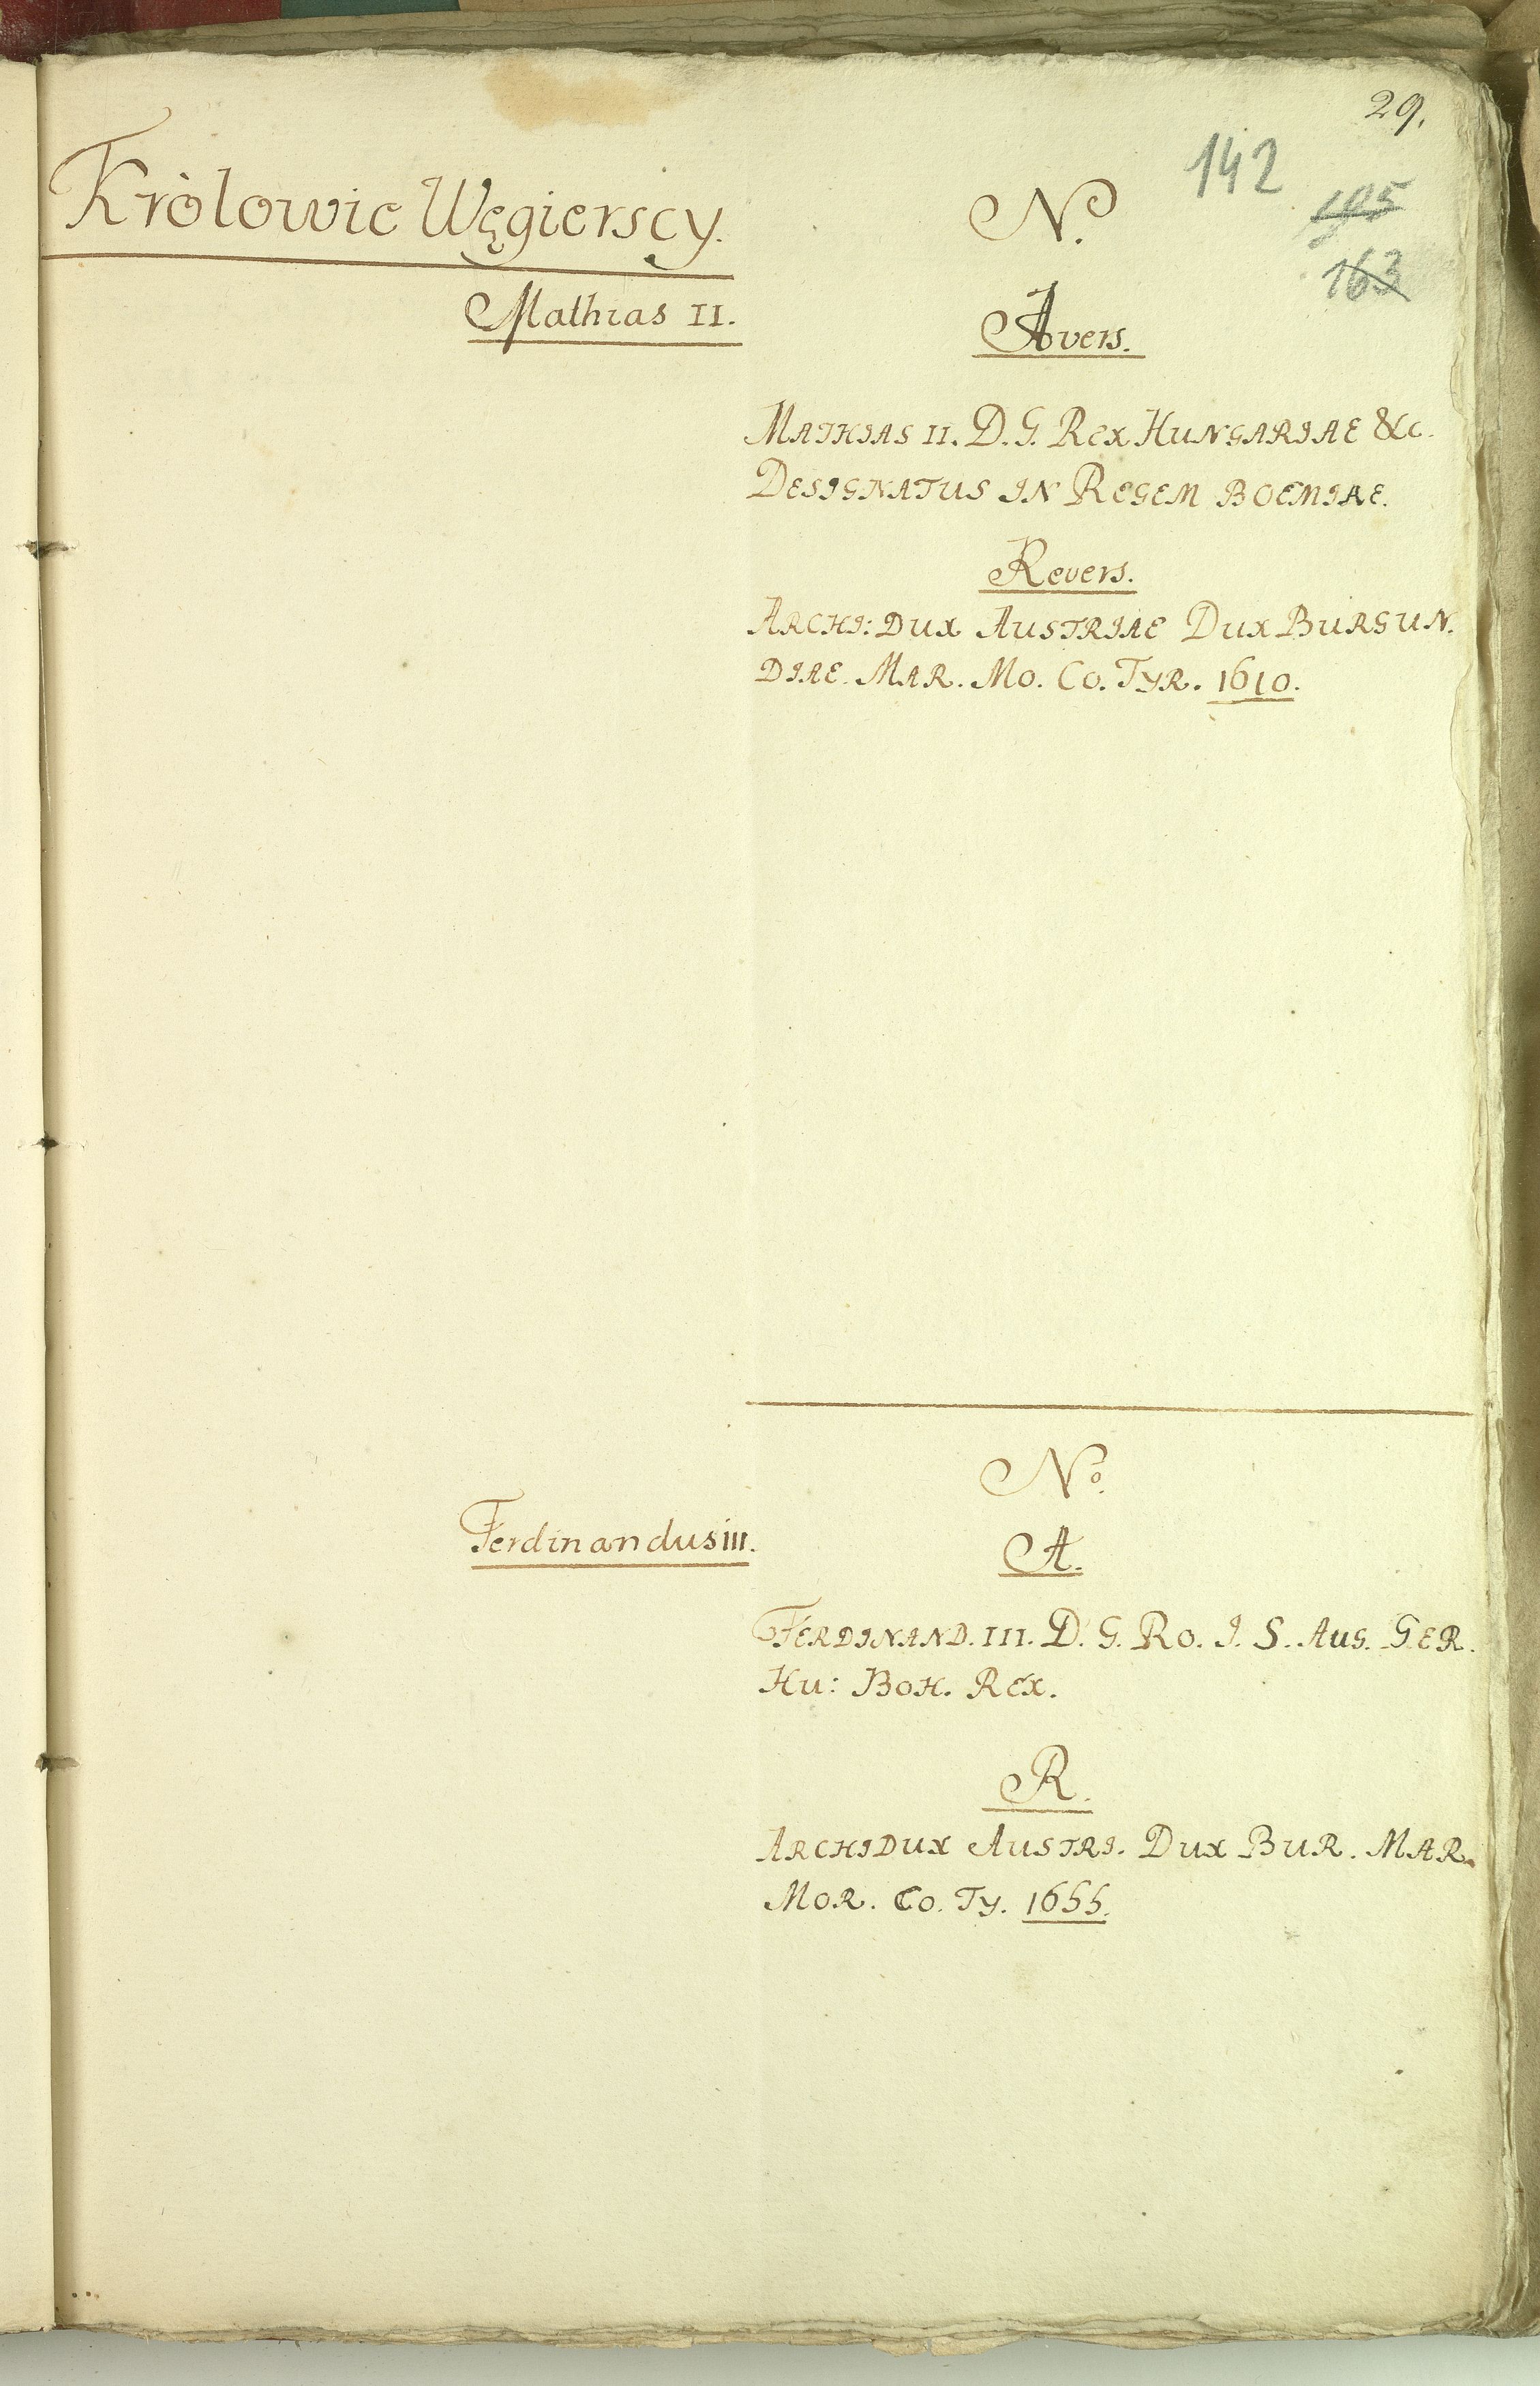 29.
142
163
Kròlowie Węgierscy.
N.
Mathias II.
Avers.
MATHIAS II. D. G. REX HUNGARIAE &c.
DESIGNATUS IN REGEM BOEMIAE.
Revers.
ARCHI: DUX AUSTRIAE DUX BURGUN.
DIAE. MAR. MO. CO. TYR. 1610.
No.
Ferdinandus III.
A.
FERDINAND. III. D. G. RO. I. S. AUG. GER.
HU: BOH. REX.
R.
ARCHIDUX AUSTRI. DUX BUR. MAR.
MOR. CO. TY. 1655.